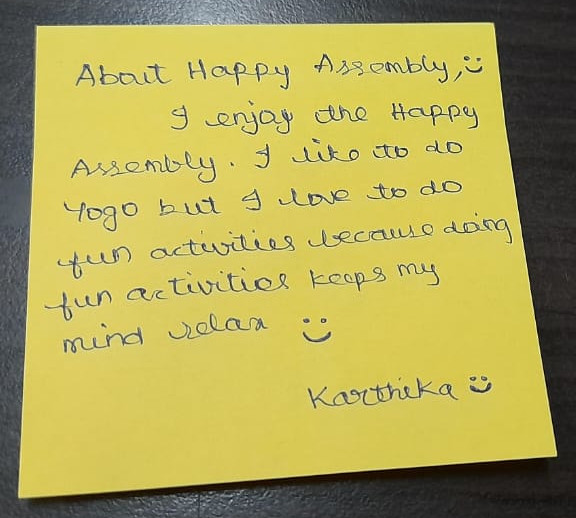 About Happy Assembly, :)
I enjoy the Happy
Assembly. I like to do
Yogo but I love to do
fun activities because doing
fun activities keeps my
mind relax :)
Karthika :)